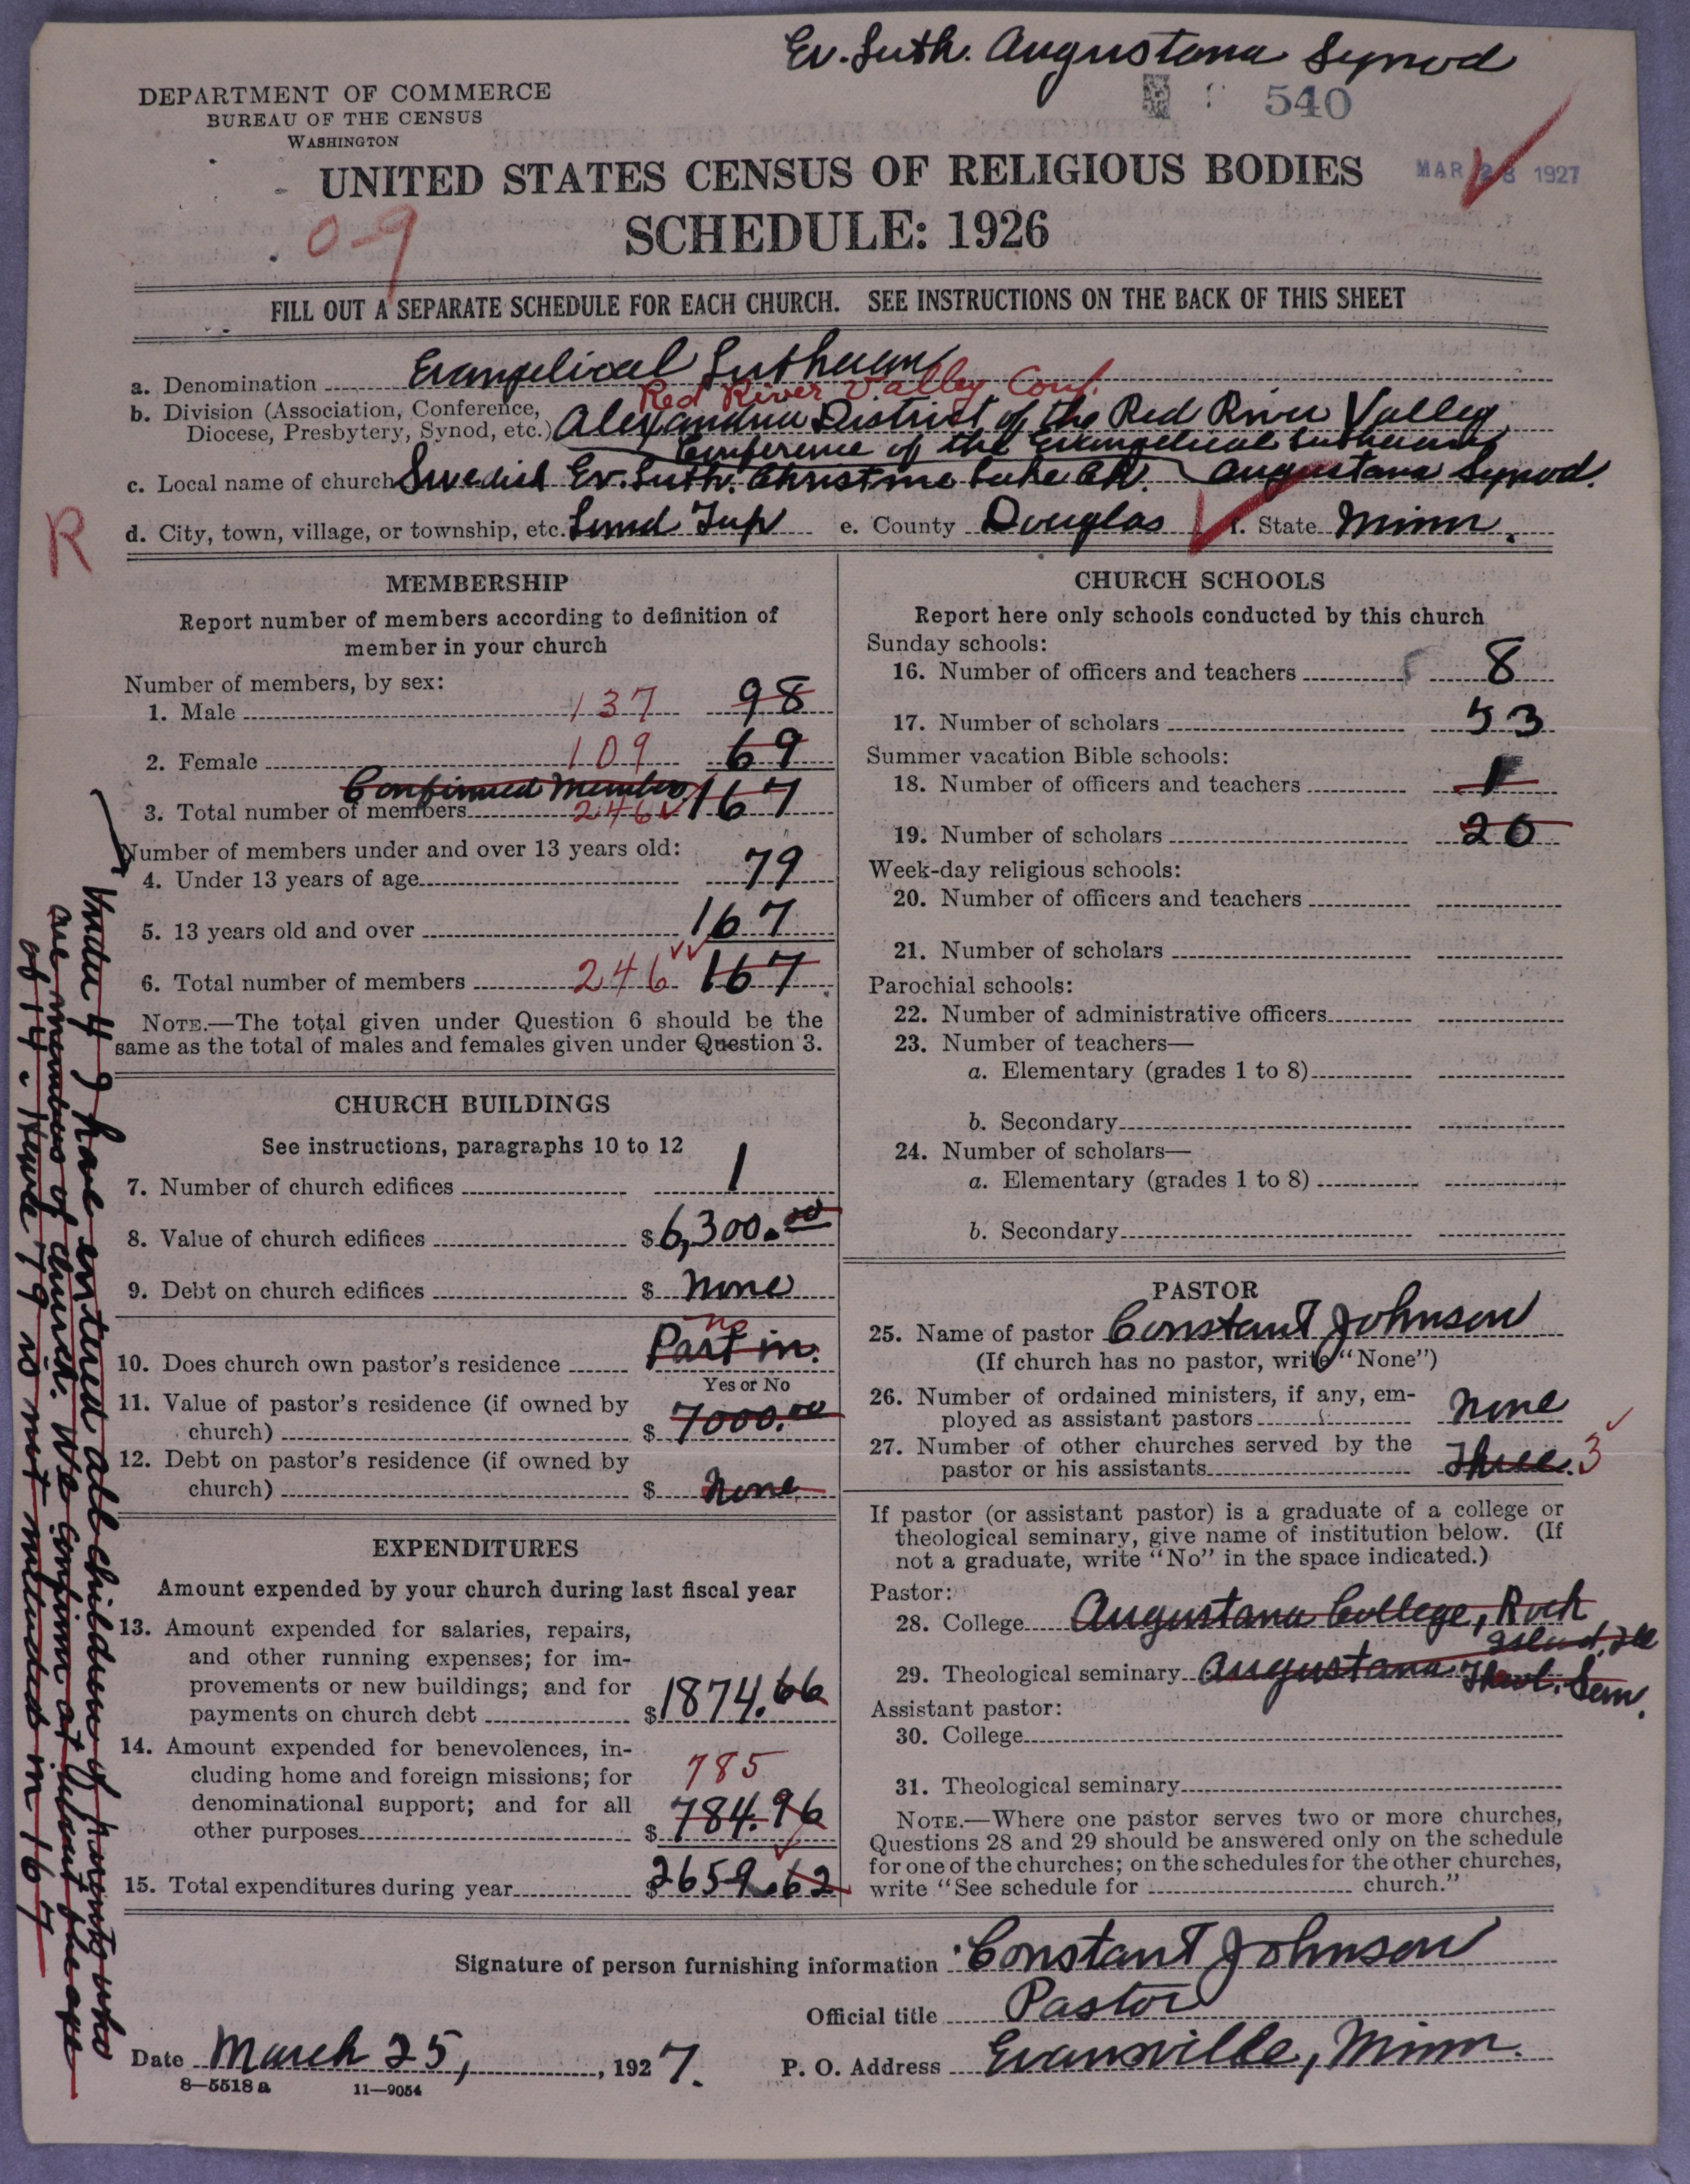 Ev. Luth. Augustana Synod
DEPARTMENT OF COMMERCE
BUREAU OF THE CENSUS
WASHINGTON
540
UNITED STATES CENSUS OF RELIGIOUS BODIES
MAR 28 1927
SCHEDULE: 1926
0-9
FILL OUT A SEPARATE SCHEDULE FOR EACH CHURCH. SEE INSTRUCTIONS ON THE BACK OF THIS SHEET
a. Denomination Evangelical Lutheran
Red River Valley Conf.
b. Division (Association, Conference, Diocese, Presbytery, Synod, etc.) Alexandria District of the Red River Valley
Conference of the Evangelical Lutheran
Augustana Synod.
c. Local name of church Swedish Ev. Luth. Christine Lake Ch.
R
d. City, town, village, or township, etc. Lund Twp e. County Douglas f. State Minn.
MEMBERSHIP
Report number of members according to definition of
member in your church
Number of members, by sex:
1. Male 137 98
2. Female 109 69
Confirmed Members
3. Total number of members 246 167
Number of members under and over 13 years old:
4. Under 13 years of age 79
5. 13 years old and over 167
6. Total number of members 246 167
NOTE.—The total given under Question 6 should be the
same as the total of males and females given under Question 3.
CHURCH BUILDINGS
See instructions, paragraphs 10 to 12
7. Number of church edifices 1
8. Value of church edifices $6,300.00
9. Debt on church edifices $ None
no
10. Does church own pastor's residence Part in.
Yes or No
11. Value of pastor's residence (if owned by
church) $ 7000.00
12. Debt on pastor's residence (if owned by
church) $ None
EXPENDITURES
Amount expended by your church during last fiscal year
13. Amount expended for salaries, repairs,
and other running expenses; for im-
provements or new buildings; and for
payments on church debt $1874.66
14. Amount expended for benevolences, in-
cluding home and foreign missions; for 785
denominational support; and for all
other purposes $ 784.96
15. Total expenditures during year $2659.62
CHURCH SCHOOLS
Report here only schools conducted by this church
Sunday schools:
16. Number of officers and teachers 8
17. Number of scholars 53
Summer vacation Bible schools:
18. Number of officers and teachers 1
19. Number of scholars 20
Week-day religious schools:
20. Number of officers and teachers
21. Number of scholars
Parochial schools:
22. Number of administrative officers
23. Number of teachers—
a. Elementary (grades 1 to 8)
b. Secondary
24. Number of scholars—
a. Elementary (grades 1 to 8)
b. Secondary
PASTOR
25. Name of pastor Constant Johnson
(If church has no pastor, write "None")
26. Number of ordained ministers, if any, em-
ployed as assistant pastors None
27. Number of other churches served by the
pastor or his assistants Three. 3
If pastor (or assistant pastor) is a graduate of a college or
theological seminary, give name of institution below. (If
not a graduate, write "No" in the space indicated.)
Pastor:
28. College Augustana College, Rock
Island, Ill
29. Theological seminary Augustana Theol. Sem.
Assistant pastor:
30. College
31. Theological seminary
NOTE.—Where one pastor serves two or more churches,
Questions 28 and 29 should be answered only on the schedule
for one of the churches; on the schedules for the other churches,
write "See schedule for church."
Signature of person furnishing information Constant Johnson
Official title Pastor
Date March 25, 1927. P. O. Address Evansville, Minn.
8—5518 a 11—9054
Under 4 I have entered all children of parents who
are members of church. We confirm at about the age
of 14. Hence 79 is not included in 167